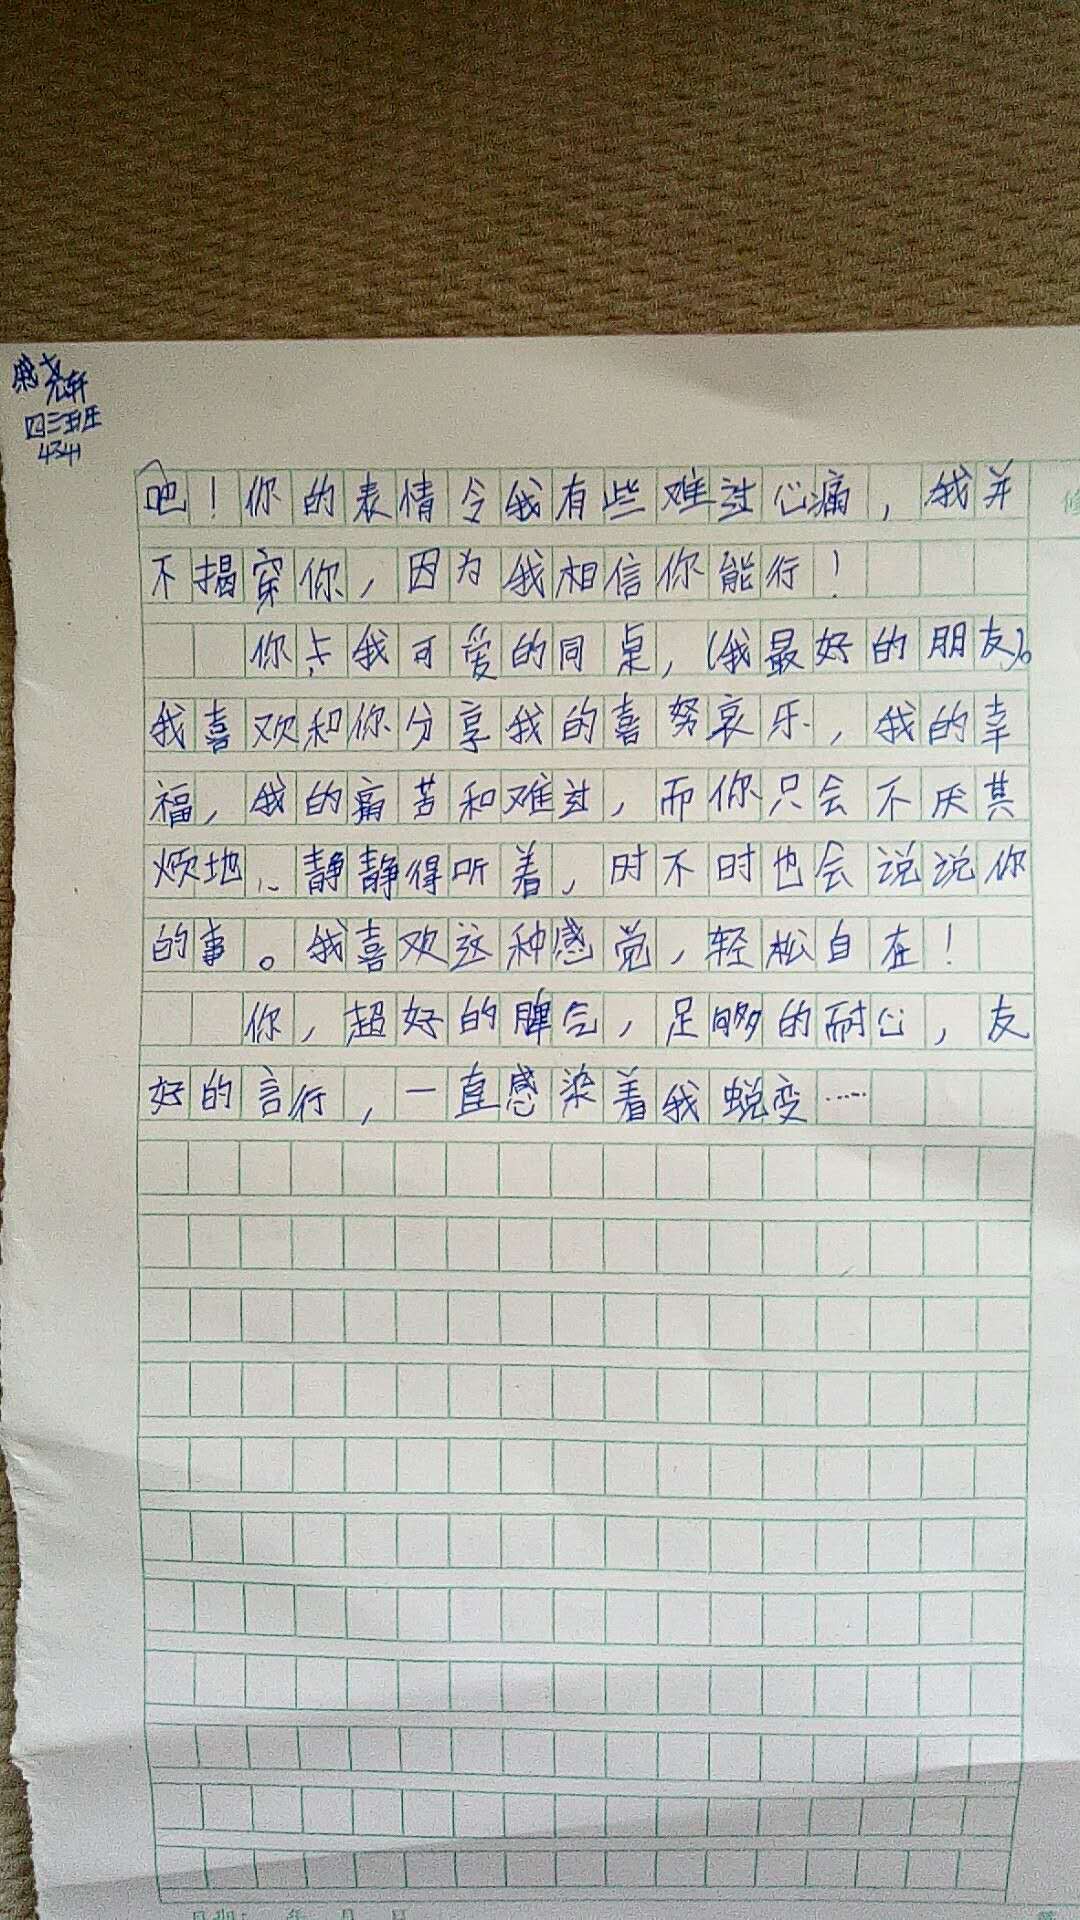 尧轩
四三班
4341
吧！你的表情令我有些难过心痛，我并
不揭穿你，因为我相信你能行！
你是我可爱的同桌，（我最好的朋友）。
我喜欢和你分享我的喜努哀乐，我的幸
福，我的痛苦和难过，而你只会不厌其
烦地、静静得听着，时不时也会说说你
的事。我喜欢这种感觉，轻松自在！
你，超好的脾气，足够的耐心，友
好的言行，一直感染着我蜕变……
日期： 年 月 日